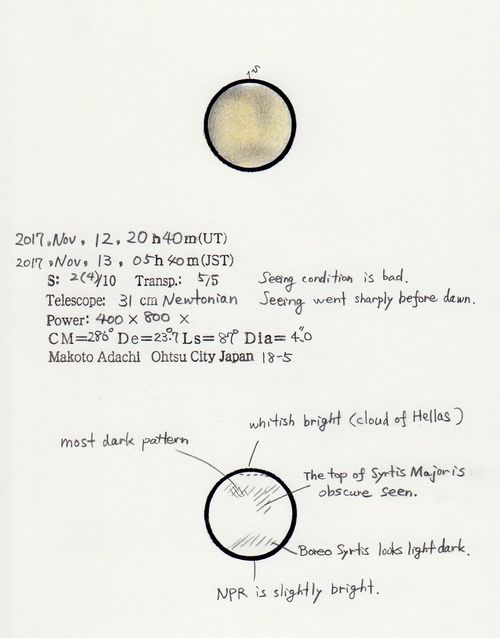 S
2017, Nov, 12, 20h40m(UT)
2017, Nov, 13, 05h40m(JST)
S: 2(4)/10 Transp.: 5/5 Seeing condition is bad.
Telescope: 31 cm Newtonian Seeing went sharply before dawn.
Power: 400 × 800 ×
CM=286° De=23.°7 Ls= 87° Dia= 4."0
Makoto Adachi Ohtsu City Japan 18-5
whitish bright (cloud of Hellas)
most dark pattern
The top of Syrtis Major is
obscure seen.
Boreo Syrtis looks light dark.
NPR is slightly bright.